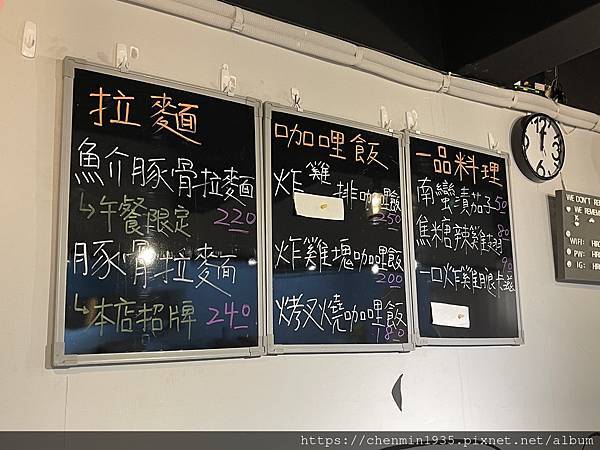 拉麵
魚介豚骨拉麵
↳午餐限定 220
豚骨拉麵
↳本店招牌 240
咖哩飯
炸雞排咖哩飯
250
炸雞塊咖哩飯
200
烤叉燒咖哩飯
180
一品料理
南蠻漬茄子50
焦糖辣雞翅80
90
一口炸雞腿卡滋
WE DON'T
WE
WIFI:
PW:
IG:
https://chenmin1935.pixnet.net/album